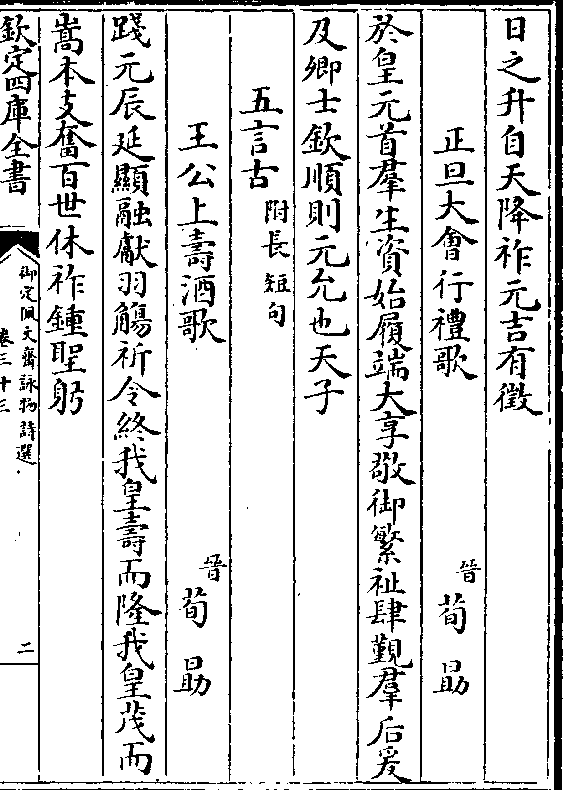 日之升自天降祚元吉有徵
正旦大會行禮歌 晉 荀勗
於皇元首羣生資始履端大享敬御繁祉肆覲羣后爰
及卿士欽順則元允也天子
五言古 附長短句
王公上壽酒歌 晉 荀勗
踐元辰延顯融獻羽觴祈令終我皇壽而隆我皇茂而
嵩本支奮百世休祚鍾聖躬
欽定四庫全書
御定佩文齋詠物詩選
卷三十三
二